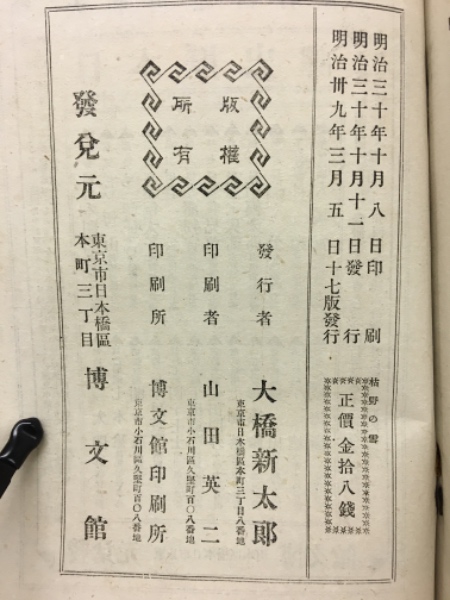 明治三十年十月八日印刷
明治三十年十月十一日發行
明治卅九年三月五日十七版發行
枯野の雪
正價金拾八錢
版權
所有
發行者
大橋新太郎
東京市日本橋區本町三丁目八番地
印刷者
山田英二
東京市小石川區久堅町百〇八番地
印刷所
博文館印刷所
東京市小石川區久堅町百〇八番地
發兌元
東京市日本橋區
本町三丁目
博文館